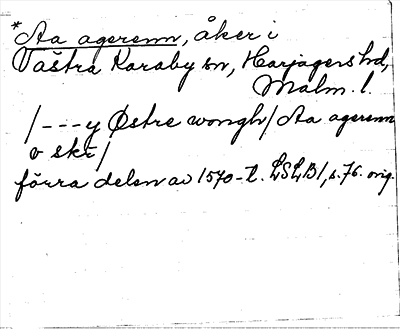 *Aa agerenn, åker i
Västra Karaby sn, Harjagers hd,
Malm. l.
/---y Østre wongh/ Aa agerenn
v skr/
förra delen av 1570-t. LSLB1, s. 76. orig.